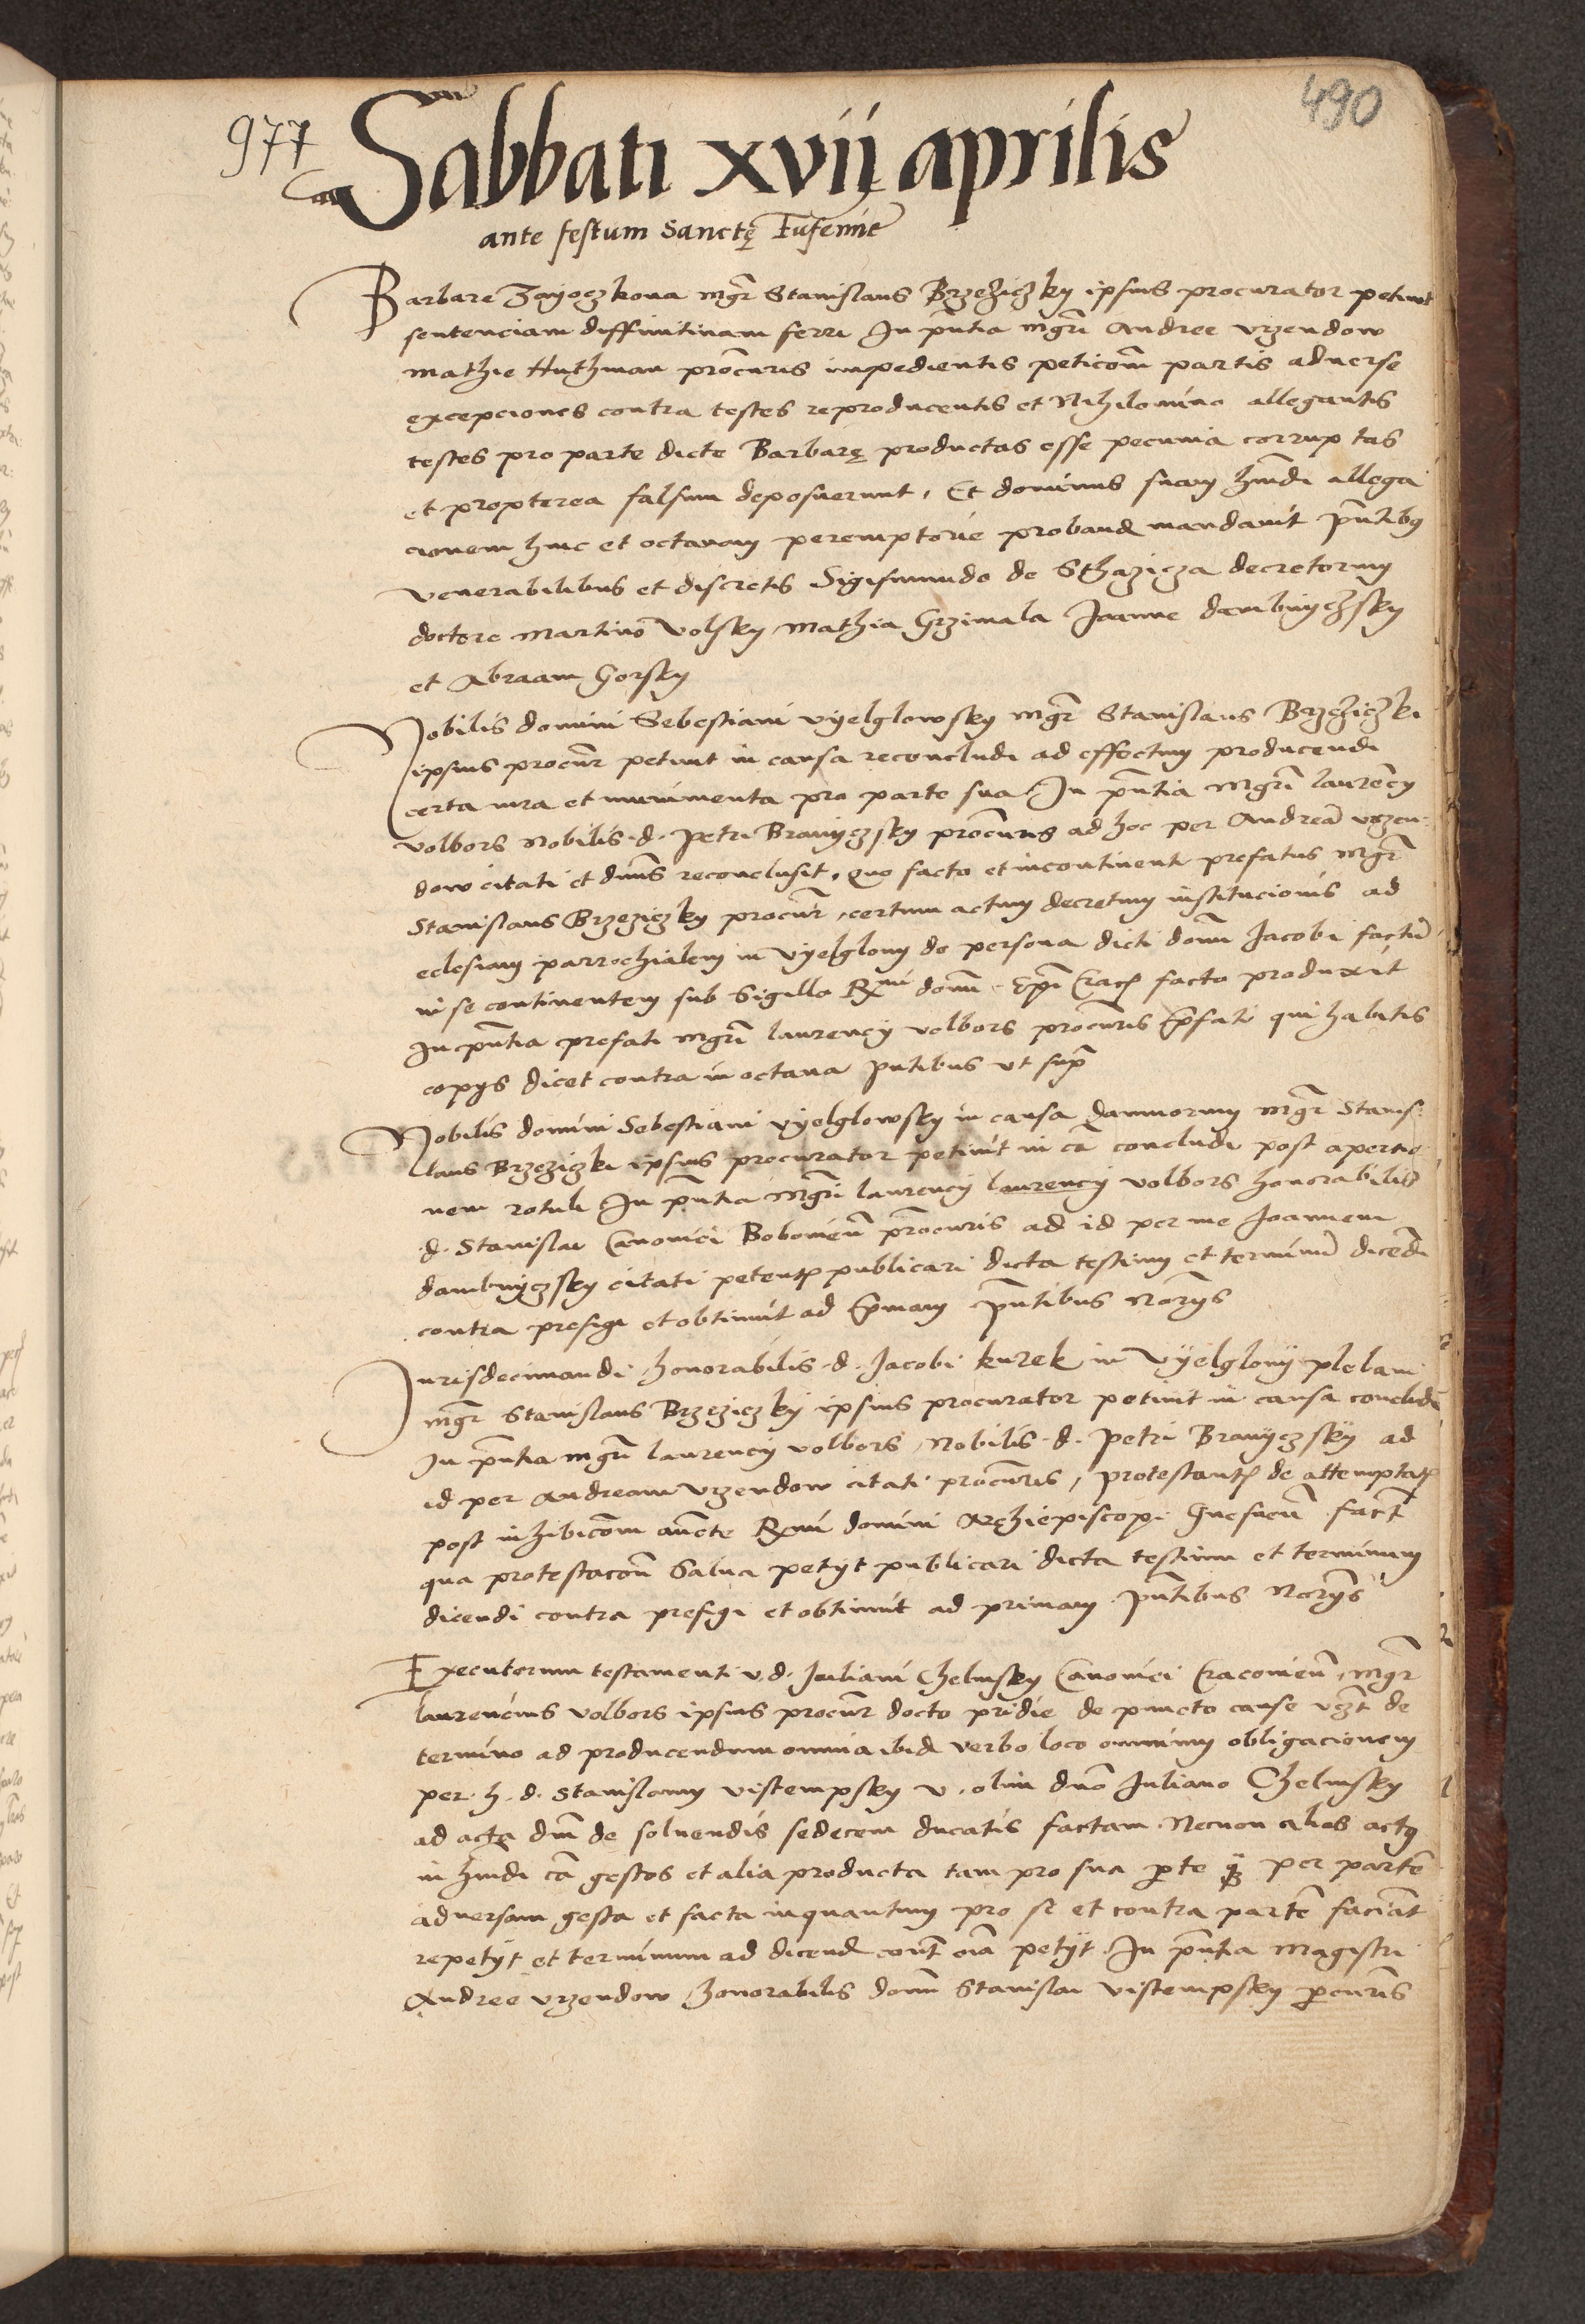 490
977
Sabbati xvij aprilis
ante festum Sanctę Eufemie
Barbare Zayoczkowa mgr Stanislaus Brzeziczky ipsius procurator petiuit
sentenciam diffinitiuam ferri In pntia mgri Andree vrzendow
mathie Huthman procuris impedientis peticom partis aduerse
excepciones contra testes reproducentis et Nihilominus allegantis
testes pro parte dicte Barbarę productas esse pecunia corruptas
et propterea falsum deposuerunt, Et dominus suam hmdi allega
cionem hinc et octauam peremptorie proband mandauit pntibus
venerabilibus et discretis Sigismundo de Sthezicza decretorum
doctore Martino Volsky Mathia Grzimala Joanne dambnyczsky
et Abraam Gorsky
Nobilis domini Sebestiani vyelglowsky mgr Stanislaus Brzeziczki
ipsius procur petiuit in causa reconcludi ad effectum producendi
certa iura et munimenta pro parte sua In pntia mgri laurency
volbors Nobilis d. Petri Branyczsky procuris ad hoc per Andrea vrzen
dow citati et dnus reconclusit, quo facto et incontinenti prefatus mgr
Stanislaus Brzeziczky procur, certum actum decretum institucionis ad
eclesiam parrochialem in vyelglowy de persona dicti domi Jacobi factum
in se continentem sub Sigillo Rmi domi Epi Crac facto produxit
In pntia prefati mgri laurency volbors procuris pfati qui habitis
copys dicet contra in octaua pntibus vt supra
Nobilis domini Sebestiani vyelglowsky in causa damnorum mgr Stanis
laus Brzeziczki ipsius procurator petiuit in ca concludi post apertio
nem rotuli In pntia mgri laurency laurency volbors honorabilis
d. Stanislai Canonici Bobouien procuris ad id per me Joannem
dambnyczsky citati petent publicari dicta testium et terminum dicendi
contra prefigi et obtinuit ad pmam pntibus Norys
Jurisdecimandi honorabilis d. Jacobi kurek in Vyelglowy plebani
mgr Stanislaus Brzeziczky ipsius procurator petiuit in causa concludi
In pntia mgri laurency volbors Nobilis d. Petri Branyczsky ad
id per Andream vrzendow citati procuris, protestant de attemptat
post inhibicom aucte Rmi domini Archiepiscopi Gnesnen fact
qua protestacon Salua petyt publicari dicta testium et terminum
dicendi contra prefigi et obtinuit ad primam pntibus Norys
Executorum testamenti v. d. Juliani Chelmsky Canonici Cracouien, mgr
laurencius volbors ipsius procur docto pridie de puncto cause vzt de
termino ad producendum omnia ibid verbo loco omnium obligacionem
per h. d. Stanislaum vistempsky v. olim dno Juliano Chelmsky
ad acta dni de soluendis sedecem ducatis factam Necnon alios actus
in hmdi ca gestos et alia producta tam pro sua pte q per partem
aduersam gesta et facta inquantum pro se et contra partem faciat
repetyt et terminum ad dicend cont oia petyt In pntia Magistri
Andree vrzendow honorabilis domi Stanislai vistempsky pcuris